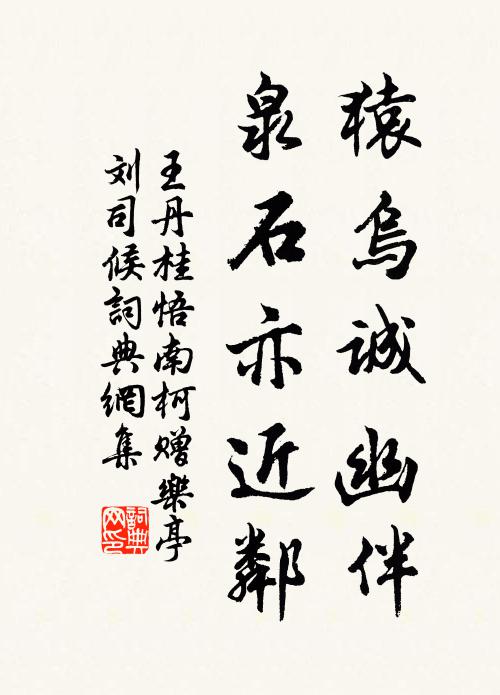 猿鸟誠幽伴
泉石亦近鄰
王丹桂悟南柯赠樂亭
刘司候詞典網集
詞典网印